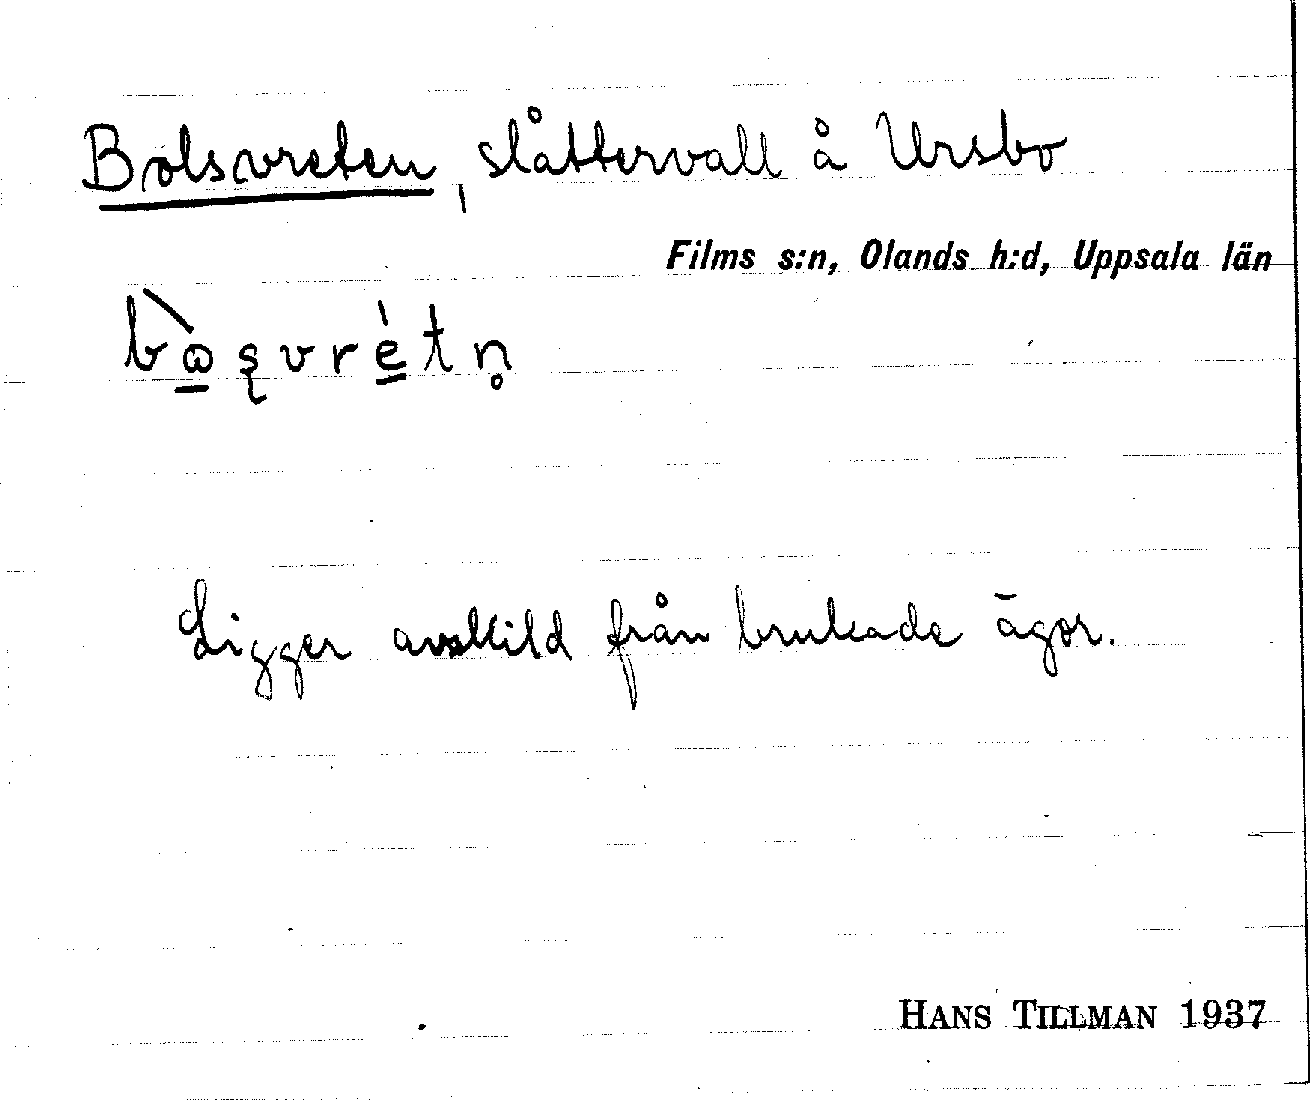 Bolsvreten, slåttervall å Ursbo
Films s:n, Olands h:d, Uppsala län
Ligger avskild från brukade ägor.
HANS TILLMAN 1937